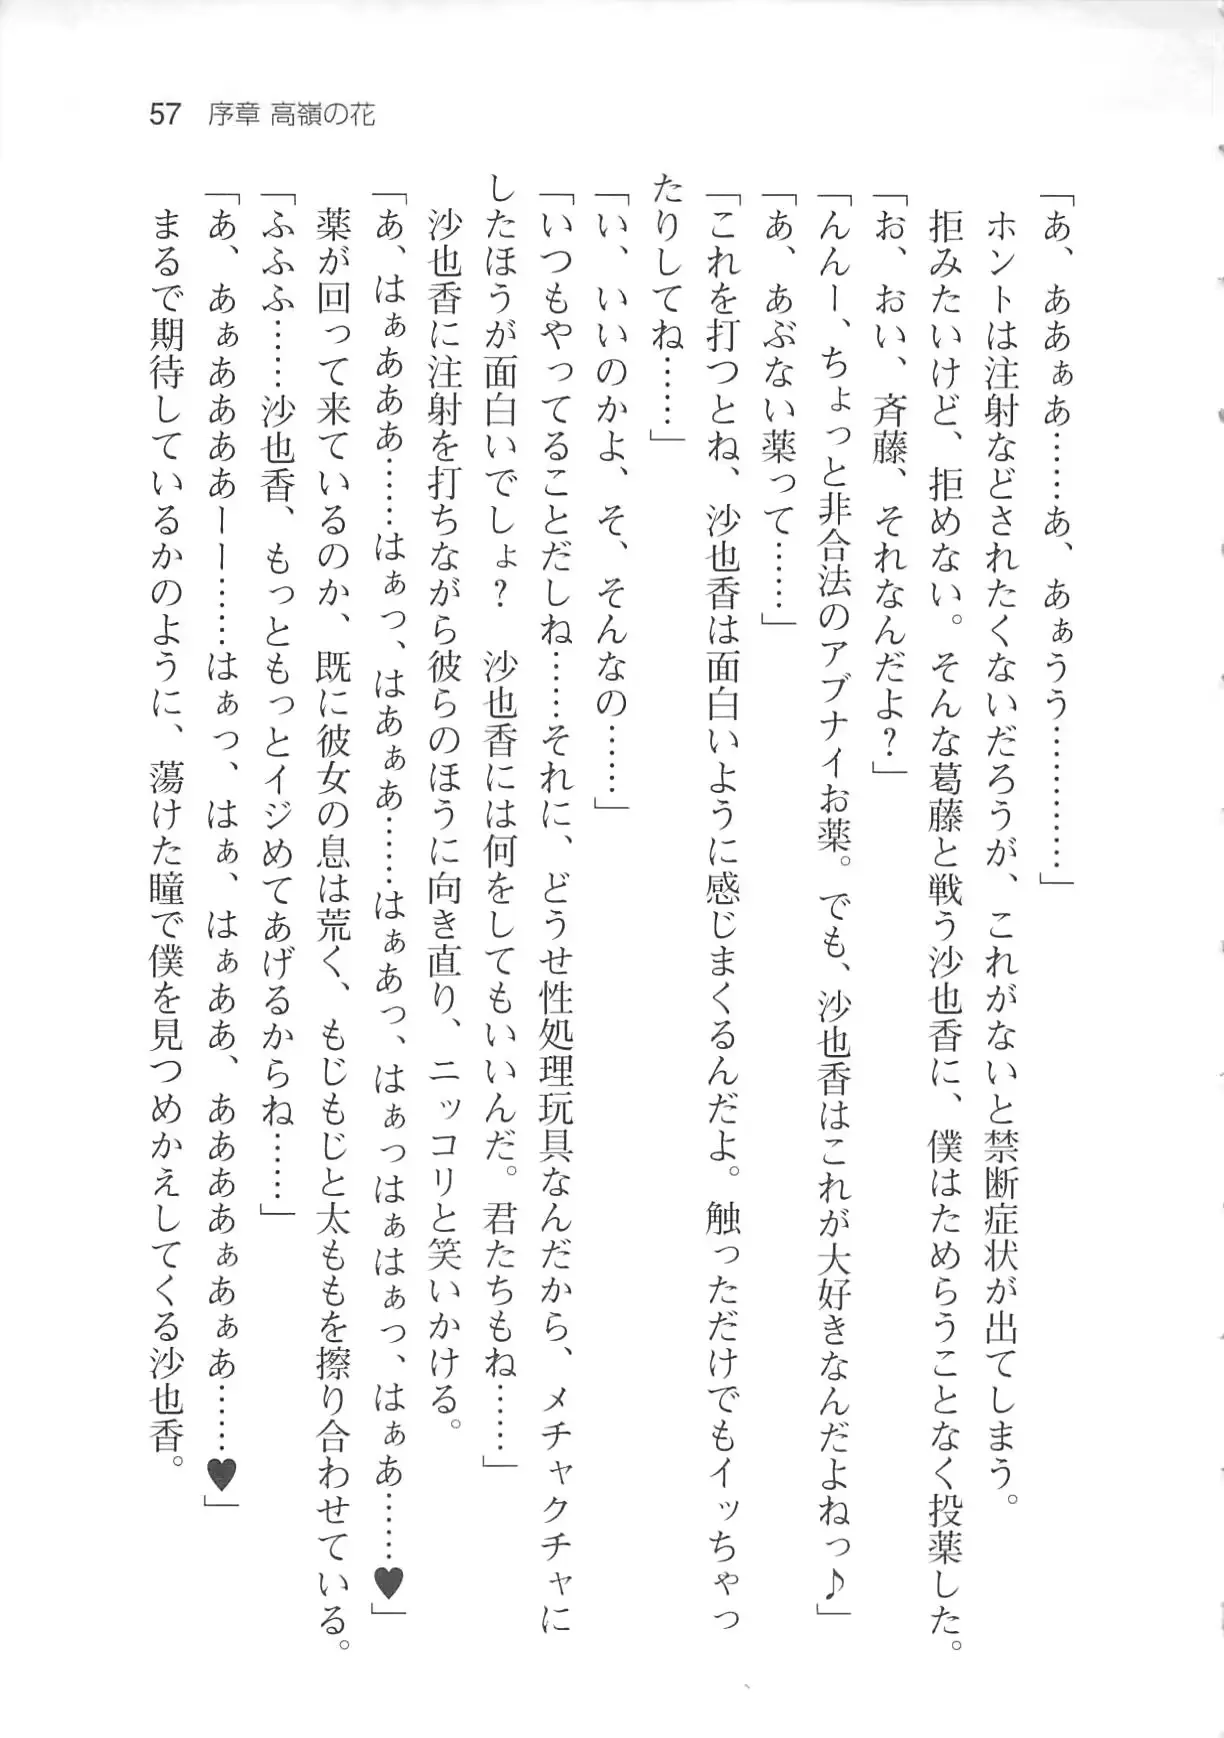 57 序章 高嶺の花
「あ、ああぁあ……あ、あぁうう…………」
ホントは注射などされたくないだろうが、これがないと禁断症状が出てしまう。
拒みたいけど、拒めない。そんな葛藤と戦う沙也香に、僕はためらうことなく投薬した。
「お、おい、斉藤、それなんだよ？」
「んんー、ちょっと非合法のアブナイお薬。でも、沙也香はこれが大好きなんだよねっ♪」
「あ、あぶない薬って……」
「これを打つとね、沙也香は面白いように感じまくるんだよ。触っただけでもイッちゃっ
たりしてね……」
「い、いいのかよ、そ、そんなの……」
「いつもやってることだしね……それに、どうせ性処理玩具なんだから、メチャクチャに
したほうが面白いでしょ？　沙也香には何をしてもいいんだ。君たちもね……」
沙也香に注射を打ちながら彼らのほうに向き直り、ニッコリと笑いかける。
「あ、はぁあああ……はぁっ、はあぁあ……はぁあっ、はぁっはぁはぁっ、はぁあ……♥」
薬が回って来ているのか、既に彼女の息は荒く、もじもじと太ももを擦り合わせている。
「ふふふ……沙也香、もっともっとイジめてあげるからね……」
「あ、あぁああああーー……はぁっ、はぁ、はぁああ、ああああぁあぁあ……♥」
まるで期待しているかのように、蕩けた瞳で僕を見つめかえしてくる沙也香。